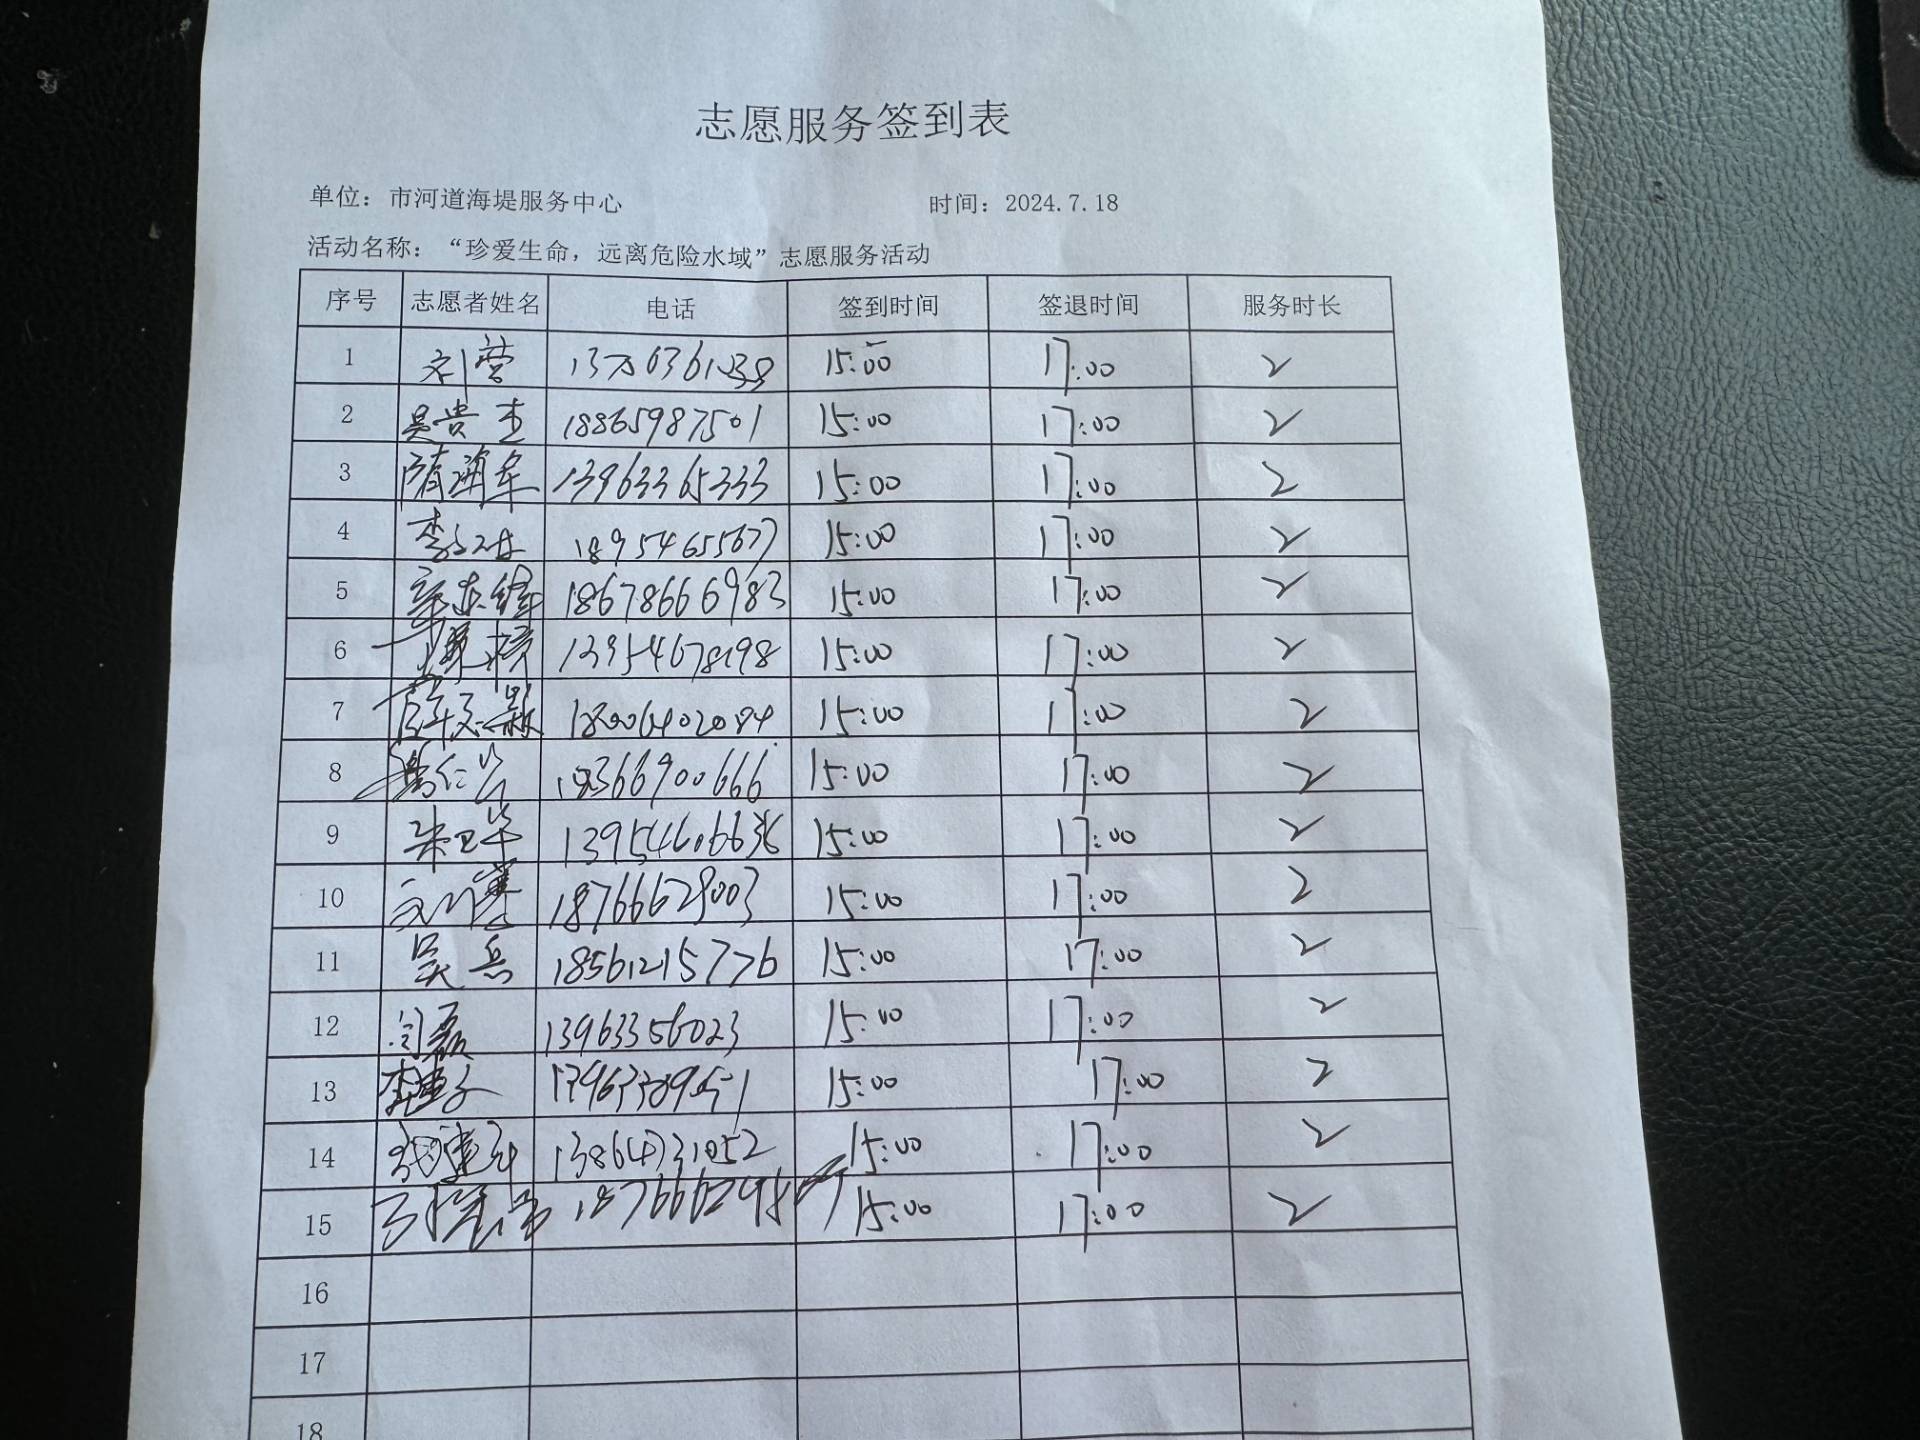 志愿服务签到表
单位：市河道海堤服务中心 时间：2024.7.18
活动名称：“珍爱生命，远离危险水域”志愿服务活动
序号 志愿者姓名 电话 签到时间 签退时间 服务时长
1 刘营 15:00 17:00 2
2 吴贵杰 18865987501 15:00 17:00 2
3 隋海军 13963365333 15:00 17:00 2
4 18954655677 15:00 17:00 2
5 18678666983 15:00 17:00 2
6 13954678198 15:00 17:00 2
7 15:00 17:00 2
8 18366900666 15:00 17:00 2
9 朱卫华 13954606636 15:00 17:00 2
10 18766629003 15:00 17:00 2
11 吴兵 18561215776 15:00 17:00 2
12 闫磊 13963356023 15:00 17:00 2
13 15:00 17:00 2
14 13864731052 15:00 17:00 2
15 15:00 17:00 2
16
17
18